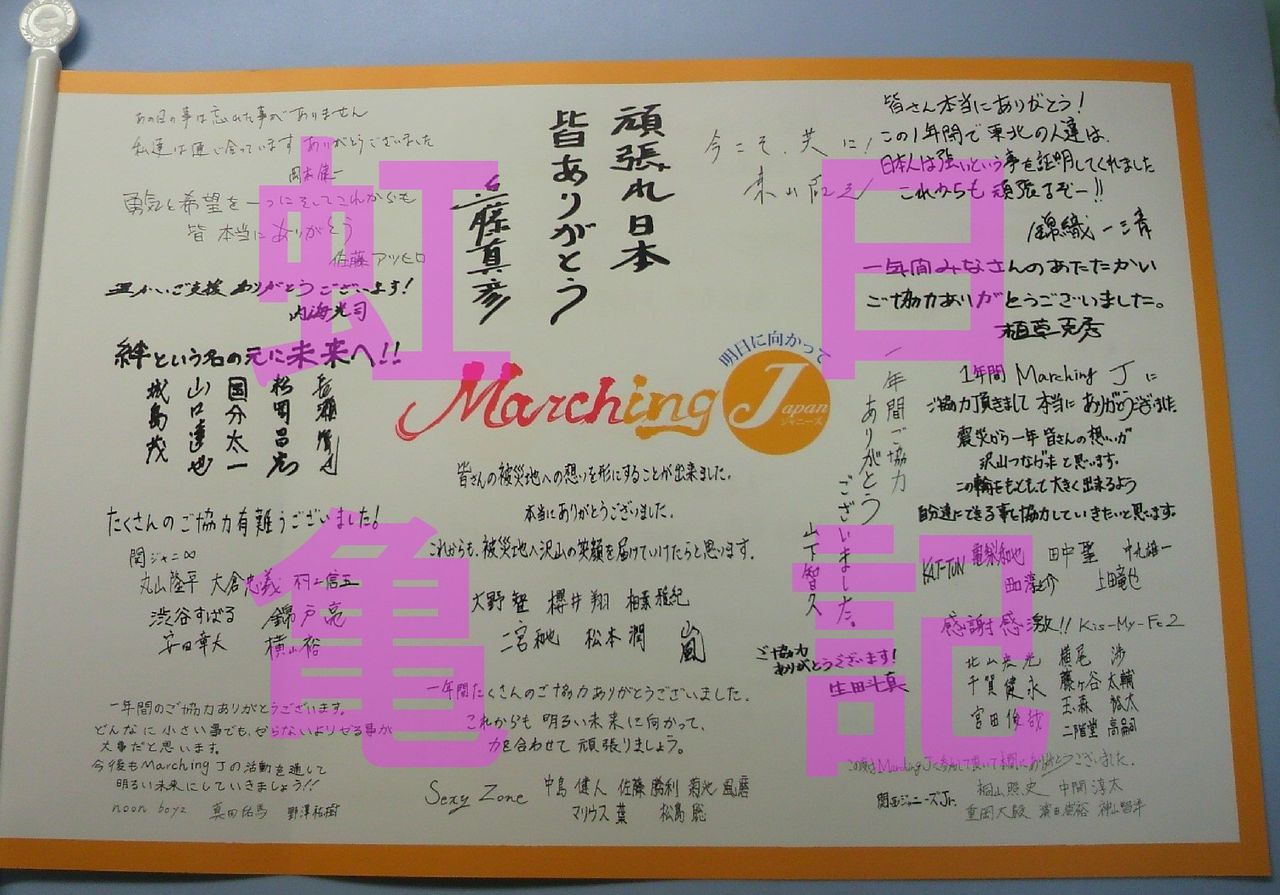 あの日の事は忘れた事がありません
私達は通じ合っています ありがとうございました
岡本健一
勇気と希望を一つにそしてこれからも
皆 本当に ありがとう
佐藤アツヒロ
温かいご支援 ありがとうございます!
内海光司
絆という名の元に未来へ!!
長瀬智也
松岡昌宏
国分太一
山口達也
城島茂
たくさんのご協力有難うございました!
関ジャニ∞
丸山隆平 大倉忠義 村上信五
渋谷すばる 錦戸亮
安田章大 横山裕
一年間のご協力ありがとうございます。
どんなに小さい事でも、やらないよりやる事が
大事だと思います。
今後もMarching Jの活動を通して
明るい未来にしていきましょう!!
noon boyz 真田佑馬 野澤祐樹
頑張れ日本
皆ありがとう
近藤真彦
今こそ、共に!
東山紀之
明日に向かって
Marching J
Japan
ジャニーズ
皆さんの被災地への想いを形にすることが出来ました。
本当にありがとうございました。
これからも、被災地へ沢山の笑顔を届けていけたらと思います。
大野智 櫻井翔 相葉雅紀
二宮和也 松本潤 嵐
一年間たくさんのご協力ありがとうございました。
これからも 明るい未来に向かって、
力を合わせて 頑張りましょう。
Sexy Zone 中島健人 佐藤勝利 菊池風磨
マリウス葉 松島聡
皆さん本当にありがとう!
この1年間で東北の人達は、
日本人は強いという事を証明してくれました
これからも 頑張るぞー!!
錦織一清
一年間みなさんのあたたかい
ご協力ありがとうございました。
植草克秀
一年間ご協力
ありがとう
ございました。
山下智久
1年間 Marching J に
ご協力頂きまして 本当に ありがとうございました
震災から一年 皆さんの想いが
沢山つながったと思います。
この輪をもっともっと大きく出来るよう
自分達にできる事を協力していきたいと思います。
KAT-TUN 亀梨和也 田中聖 中丸雄一
田口淳之介 上田竜也
ご協力
ありがとうございます!
生田斗真
感謝感激!! Kis-My-Ft2
北山宏光 横尾渉
千賀健永 藤ヶ谷太輔
宮田俊哉 玉森裕太
二階堂高嗣
関西ジャニーズJr. 桐山照史 中間淳太
重岡大毅 濱田崇裕 神山智洋
虹 日
亀 記